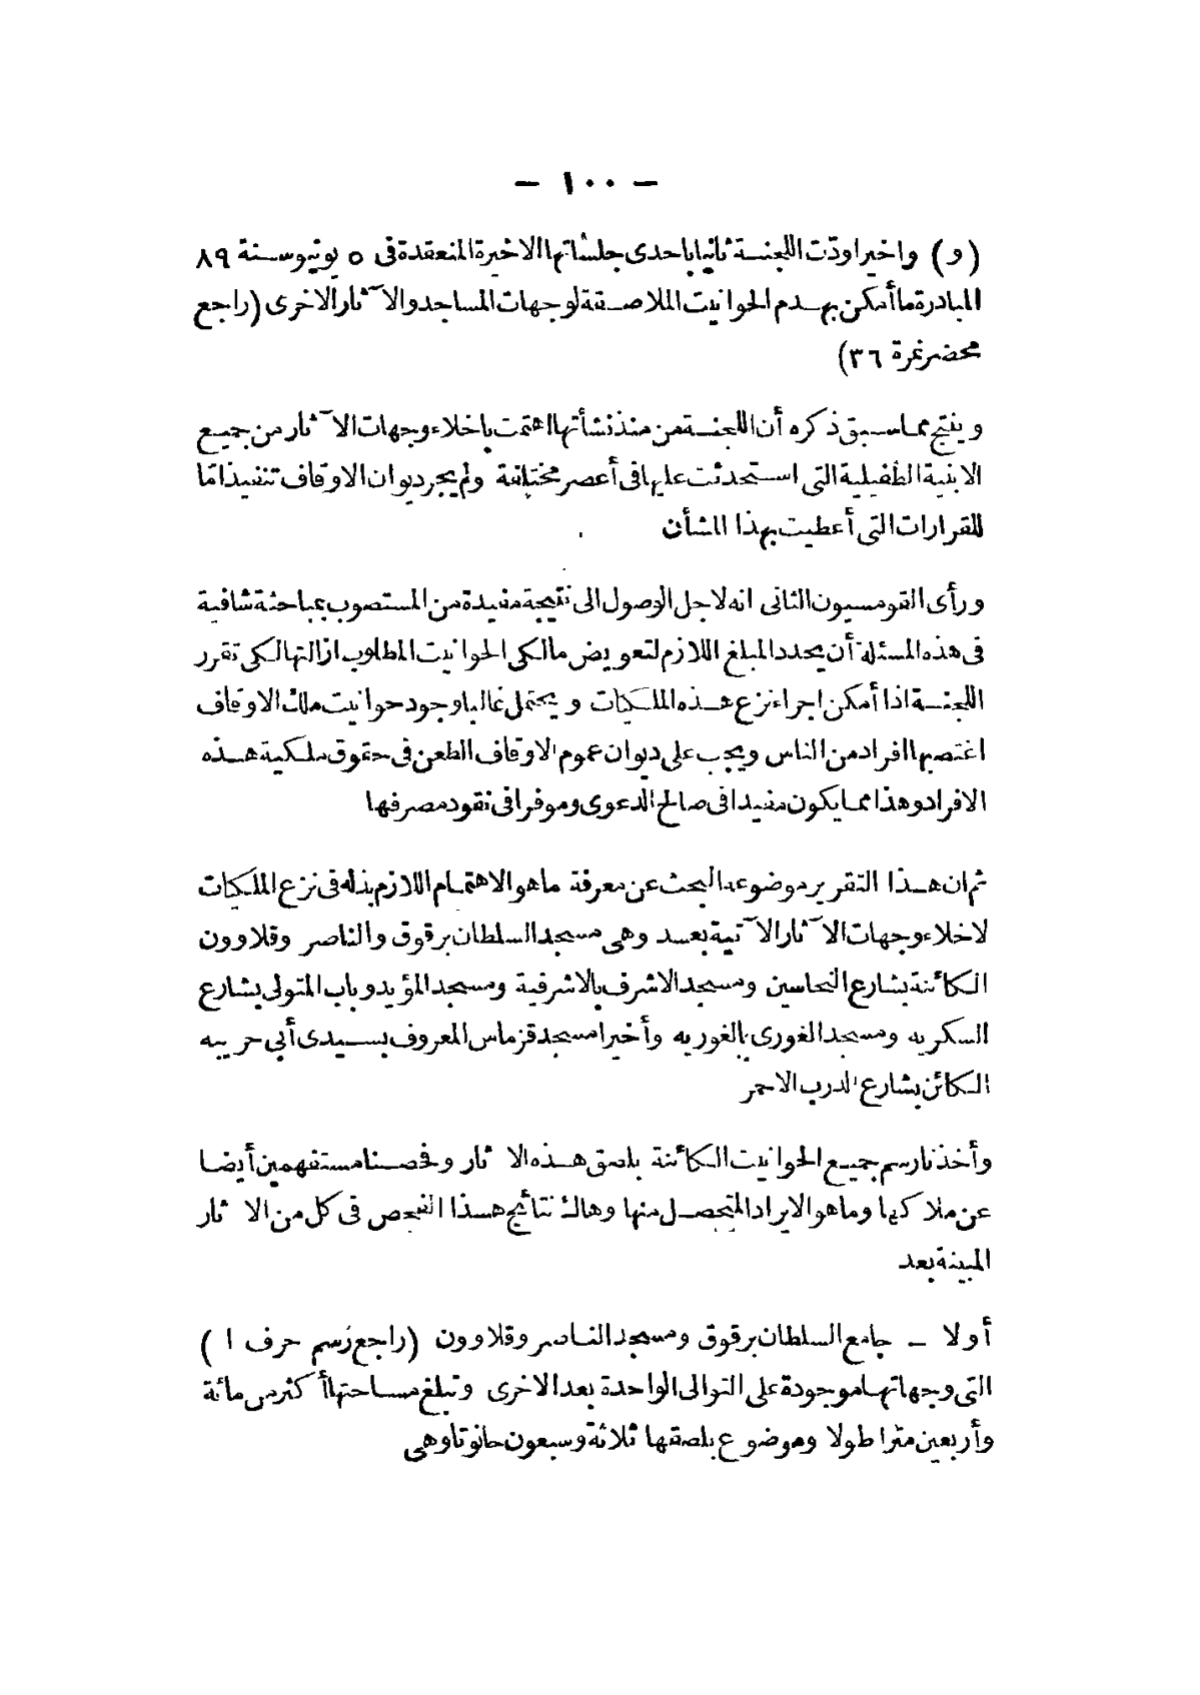 — ١٠٠ —
(و) واخيرا ودّت اللجنة ثانيا باحدى جلساتها الاخيرة المنعقدة فى ٥ يونيو سنة ٨٩
المبادرة ما أمكن بهدم الحوانيت الملاصقة لوجهات المساجد والآثار الاخرى (راجع
محضر نمرة ٣٦)
وينتج مما سبق ذكره أن اللجنة من منذ نشأتها اهتمت باخلاء وجهات الآثار من جميع
الابنية الطفيلية التى استحدثت عليها فى أعصر مختلفة ولم يجر ديوان الاوقاف تنفيذا مّا
للقرارات التى أعطيت بهذا الشأن
ورأى القومسيون الثانى انه لاجل الوصول الى نتيجة مفيدة من المستصوب بمباحثة شافية
فى هذه المسئلة أن يحدد المبلغ اللازم لتعويض مالكى الحوانيت المطلوب ازالتها لكى تقرر
اللجنة اذا أمكن اجراء نزع هذه الملكيات ويحتمل غالبا وجود حوانيت ملك الاوقاف
اغتصبها افراد من الناس ويجب على ديوان عموم الاوقاف الطعن فى حقوق ملكية هذه
الافراد وهذا مما يكون مفيدا فى صالح الدعوى وموفرا فى نقود مصرفها
ثم ان هذا التقرير موضوعه البحث عن معرفة ما هو الاهتمام اللازم بذله فى نزع الملكيات
لاخلاء وجهات الآثار الآتية بعد وهى مسجد السلطان برقوق والناصر وقلاوون
الكائنة بشارع النحاسين ومسجد الاشرف بالاشرفية ومسجد المؤيد وباب المتولى بشارع
السكريه ومسجد الغورى بالغوريه وأخيرا مسجد قزماس المعروف بسيدى أبى حريبه
الكائن بشارع الدرب الاحمر
وأخذنا رسم جميع الحوانيت الكائنة بلصق هذه الاثار وفحصنا مستفهمين أيضا
عن ملاكها وما هو الايراد المتحصل منها وهاك نتائج هذا الفحص فى كل من الاثار
المبينة بعد
أولا – جامع السلطان برقوق ومسجد الناصر وقلاوون (راجع رسم حرف ا )
التى وجهاتها موجودة على التوالى الواحدة بعد الاخرى وتبلغ مساحتها أكثر من مائة
وأربعين مترا طولا وموضوع بلصقها ثلاثة وسبعون حانوتا وهى